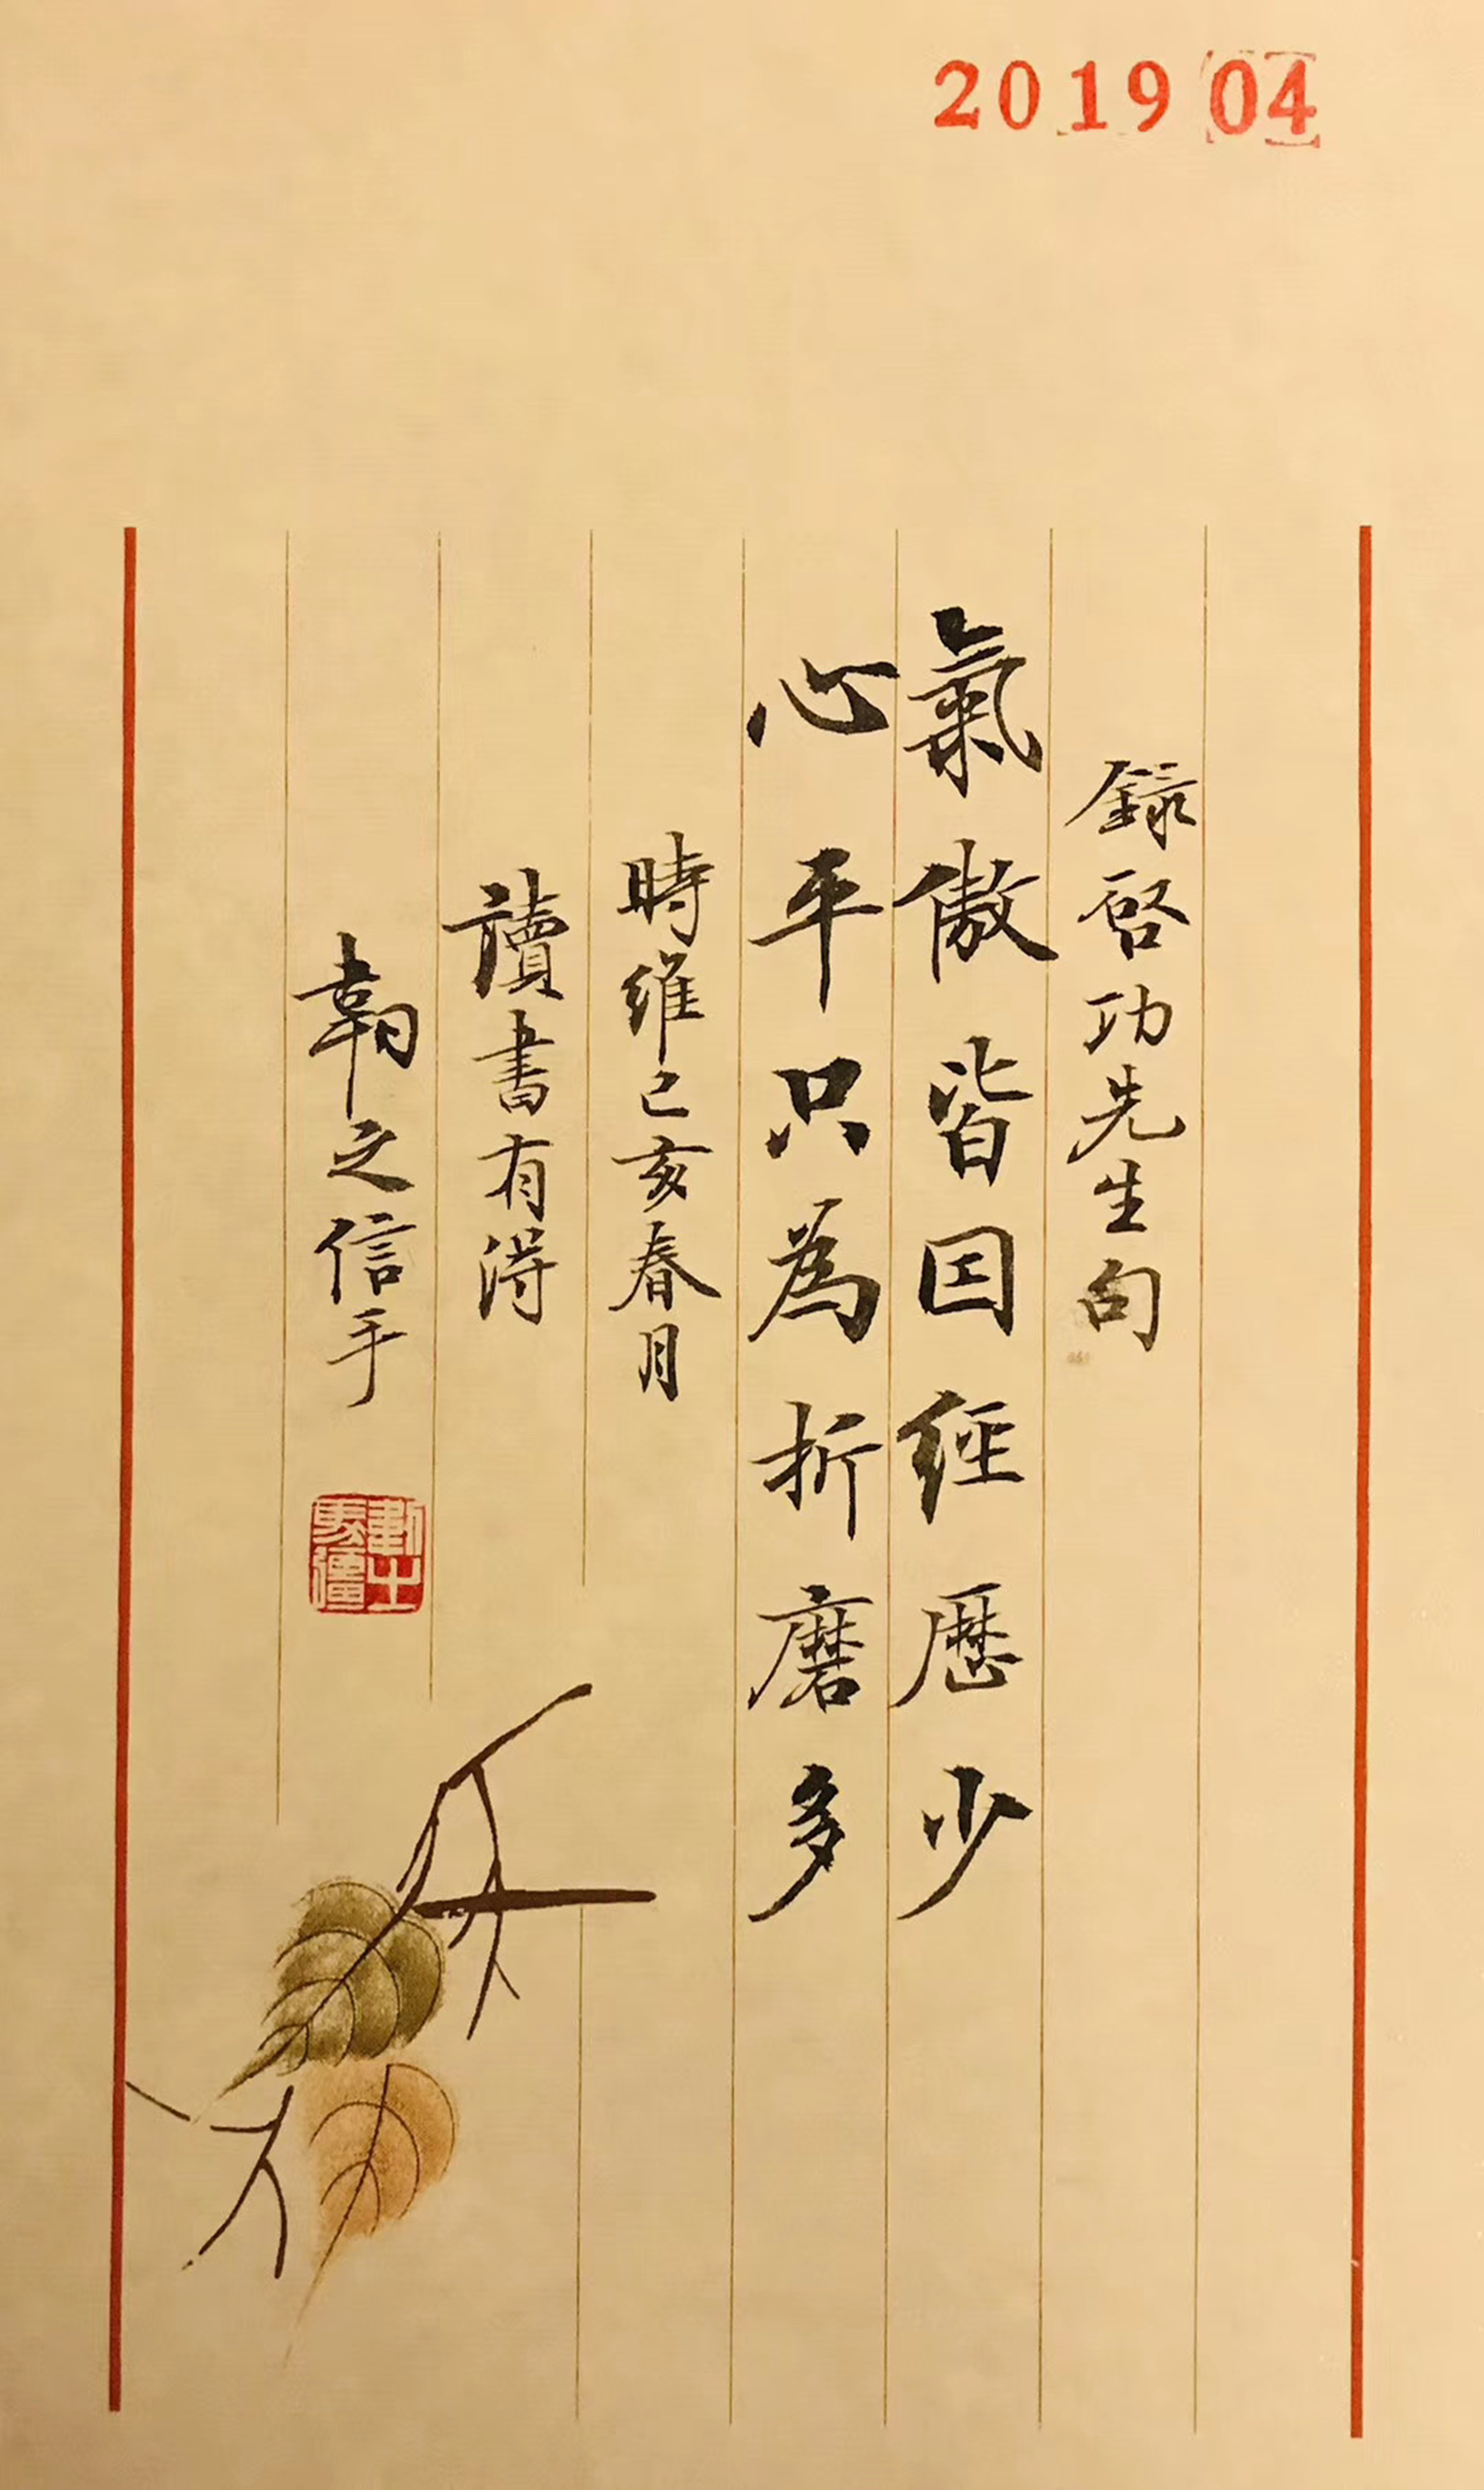 2019 04
錄啓功先生句
氣傲皆因經歷少
心平只為折磨多
時維己亥春月
讀書有得
之信手